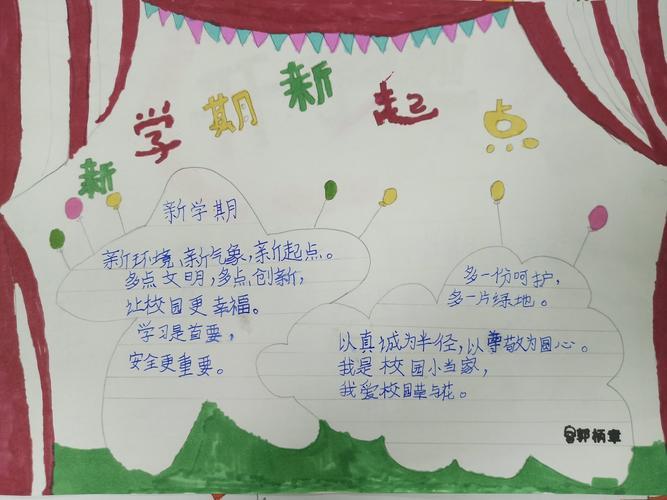 新学期新起点
新学期
新环境、新气象,新起点。
多点文明,多点创新,
让校园更幸福。
学习是首要,
安全更重要。
多一份呵护,
多一片绿地。
以真诚为半径,以尊敬为圆心。
我是校园小当家,
我爱校园草与花。
郭柄章